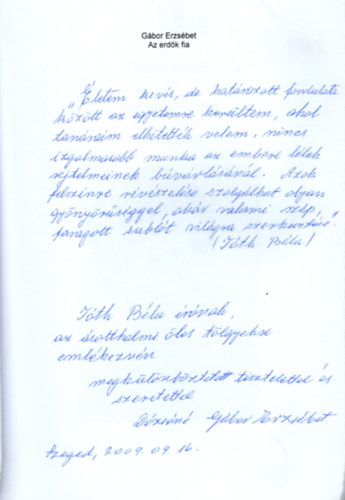 Gábor Erzsébet
Az erdők fia
„Életem kevés, de határozott fordulata
között az egyetemre kerültem, ahol
tanáraim elhitették velem, nincs
izgalmasabb munka az emberi lélek
rejtelmeinek búvárlásánál. Azok
felszínre révészelése szolgálhat olyan
gyönyörűséggel, akár valami szép,
faragott sublót világra szerkesztése."
/Tóth Béla/
Tóth Béla írónak,
az ásotthalmi öles tölgyekre
emlékezvén
megkülönböztetett tisztelettel és
szeretettel
Dózsáné Gábor Erzsébet
Szeged, 2009. 09. 16.